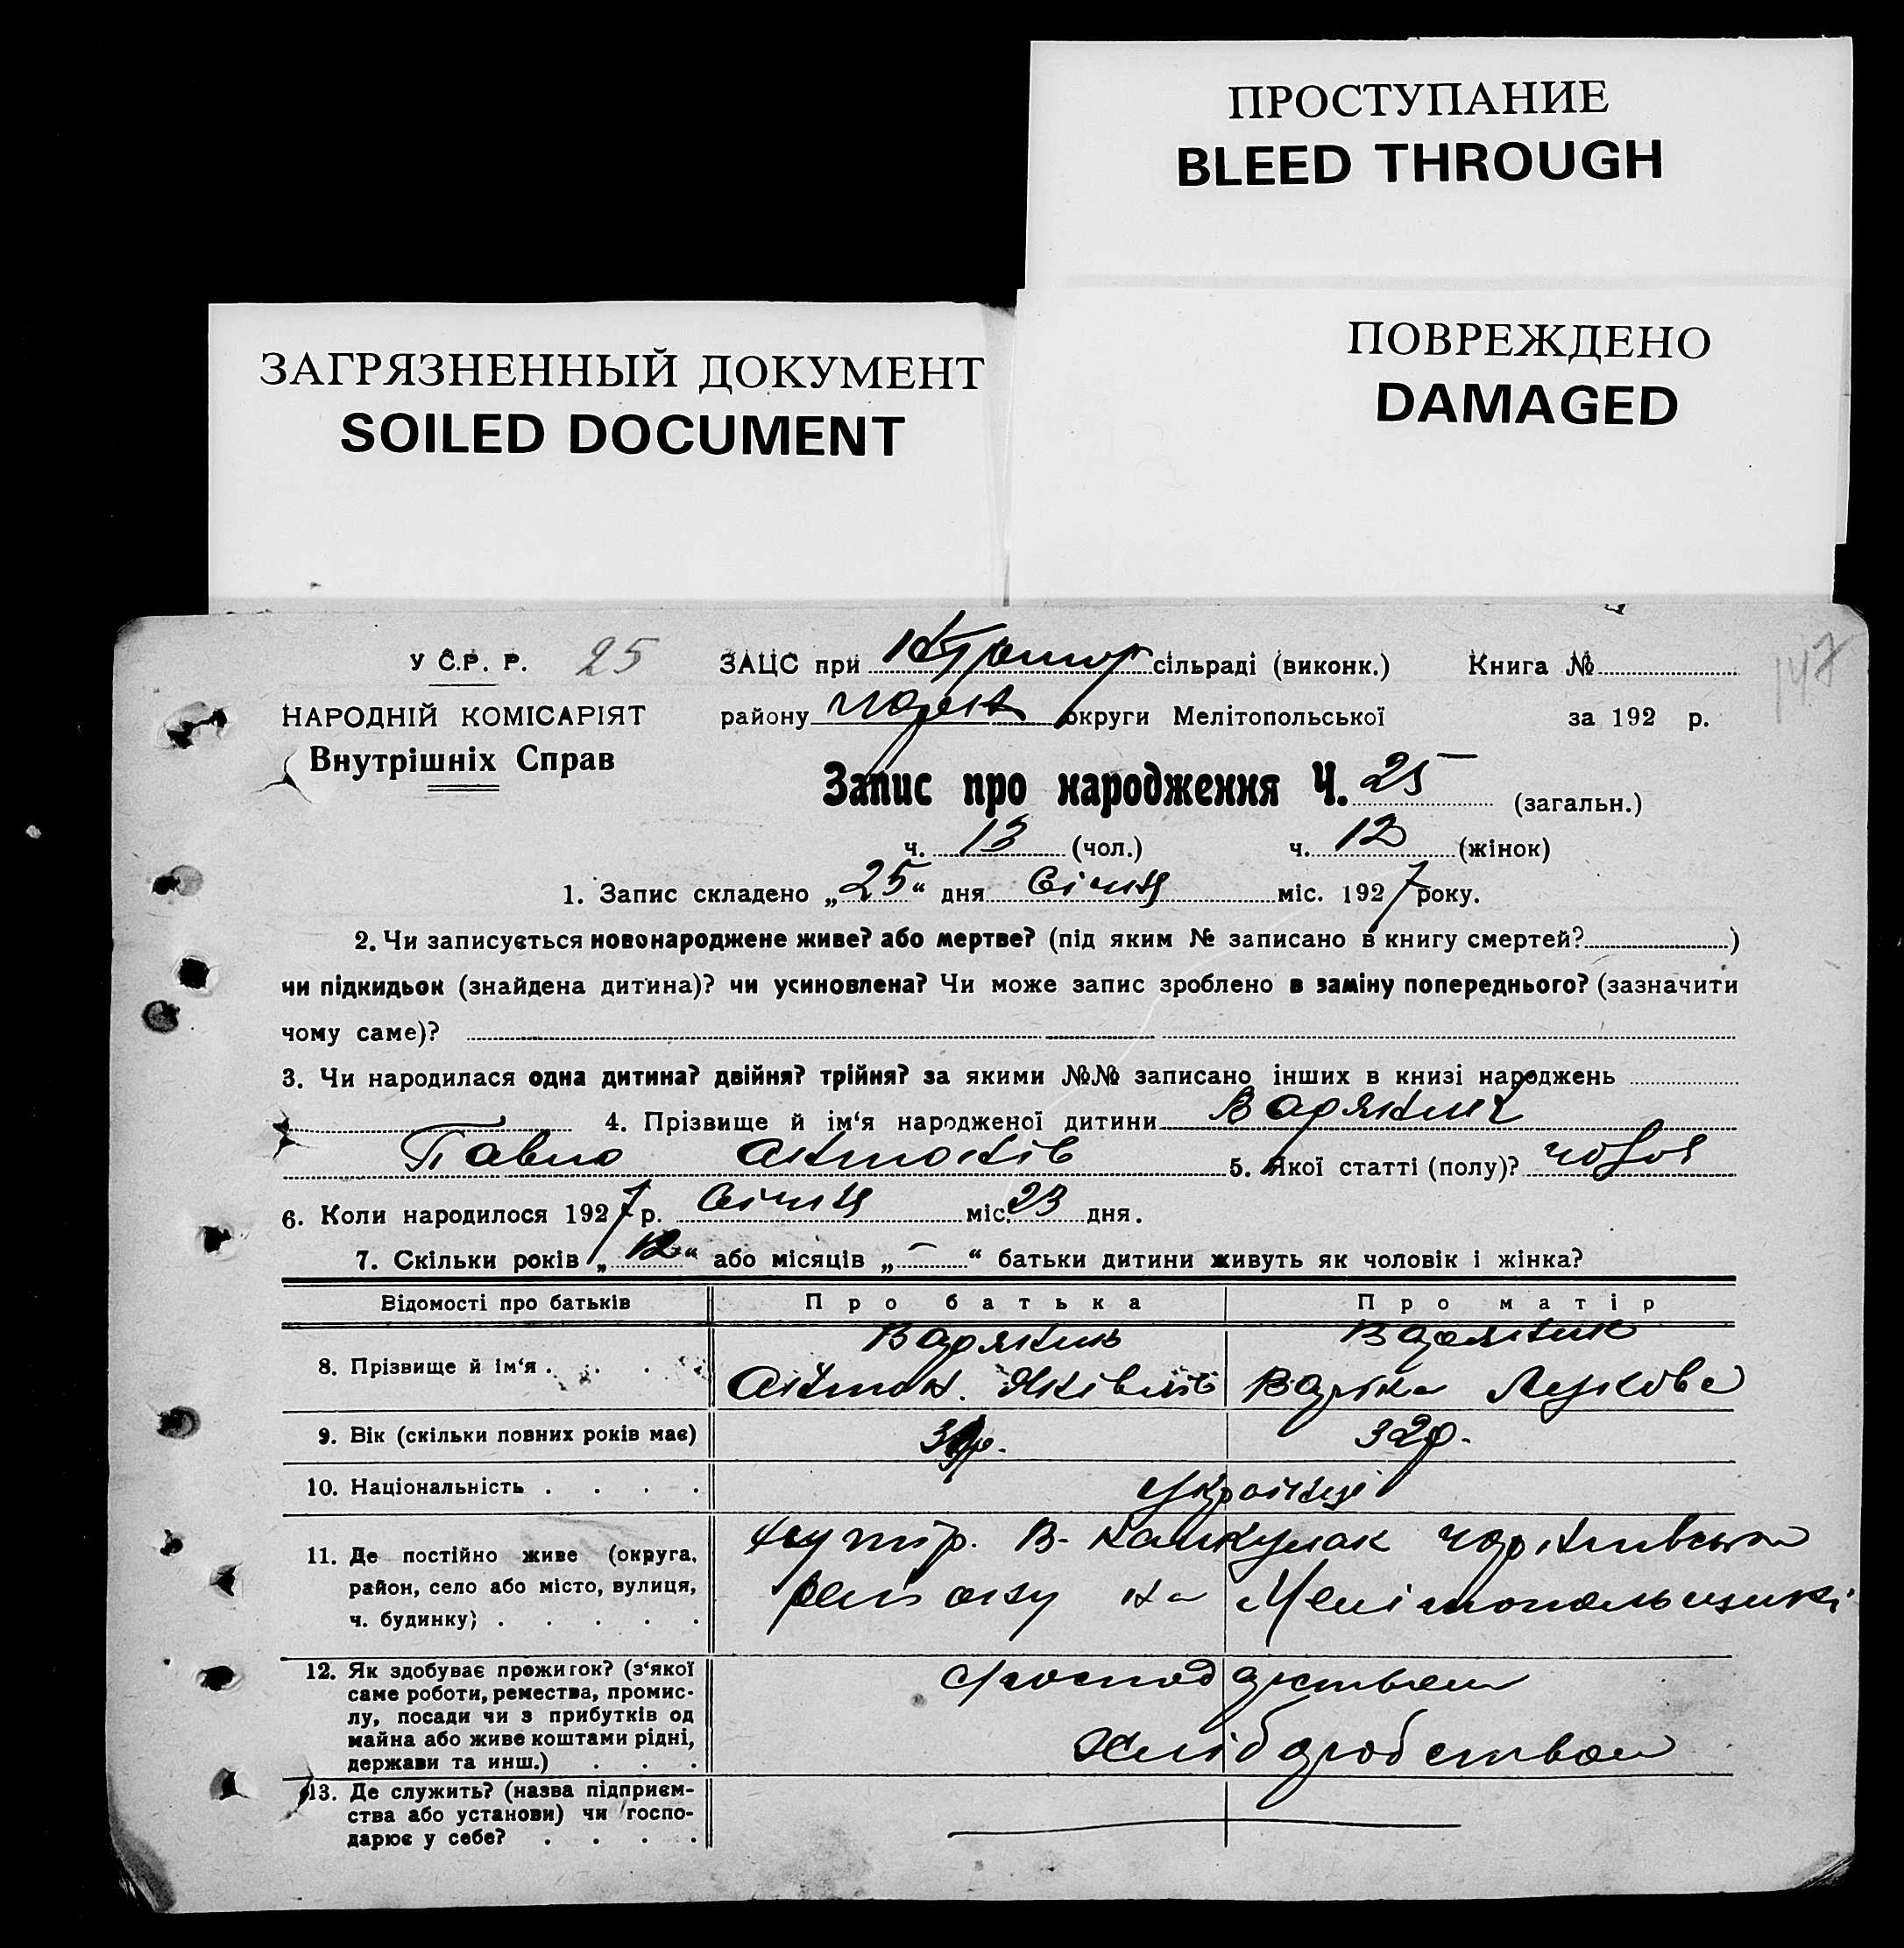 ПРОСТУПАНИЕ
BLEED THROUGH
ПОВРЕЖДЕНО
DAMAGED
ЗАГРЯЗНЕННЫЙ ДОКУМЕНТ
SOILED DOCUMENT
У С.Р. Р. 25 ЗАЦС при сільраді (виконк.) Книга № 147
НАРОДНІЙ КОМІСАРІЯТ району округи Мелітопольської за 192 р.
Внутрішніх Справ
Запис про народження Ч. 25 (загальн.)
ч. 13 (чол.) ч. 12 (жінок)
1. Запис складено „25“ дня Січня міс. 1927 року.
2. Чи записується новонароджене живе? або мертве? (під яким № записано в книгу смертей? )
чи підкидьок (знайдена дитина)? чи усиновлена? Чи може запис зроблено в заміну попереднього? (зазначити
чому саме)?
3. Чи народилася одна дитина? двійня? трійня? за якими №№ записано інших в книзі народжень
4. Прізвище й ім‘я народженої дитини
Павло Антонів 5. Якої статті (полу)? чолов
6. Коли народилося 1927 р. Січня міс. 23 дня.
7. Скільки років „12“ або місяців „—“ батьки дитини живуть як чоловік і жінка?
Відомості про батьків Про батька Про матір
8. Прізвище й ім‘я . . . . Антон Яківлів
9. Вік (скільки повних років має) 32 р.
10. Національність . . . . Українці
11. Де постійно живе (округа, хутір. В-
район, село або місто, вулиця, району на Мелітопольщині
ч. будинку) . . . . .
12. Як здобуває прожиток? (з‘якої господарством
саме роботи, ремества, промис-
лу, посади чи з прибутків од
майна або живе коштами рідні, хліборобством
держави та инш.) . . .
13. Де служить? (назва підприєм-
ства або установи) чи госпо-
дарює у себе? . . . .